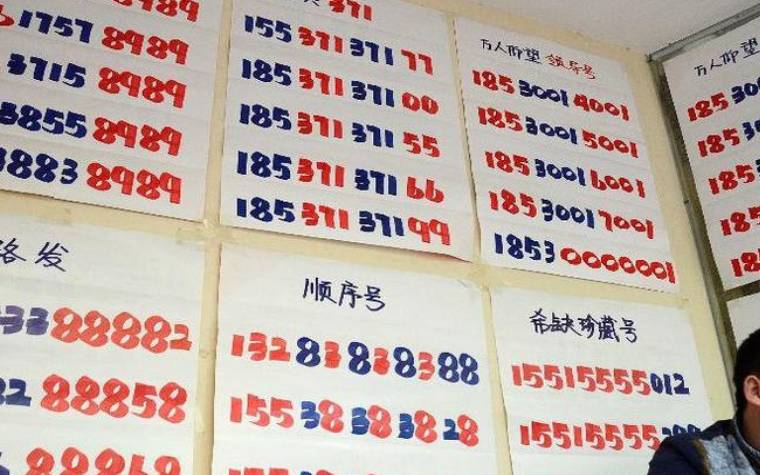 8989
1757 8989
3715 8989
3855 8989
3883 8989
371
155 371 371 77
185 371 371 00
185 371 371 55
185 371 371 66
185 371 371 99
万人仰望 领导号
185 3001 4001
185 3001 5001
185 3001 6001
185 3001 7001
1853 0000001
万人仰望
185 30
185
185
185
185
发
33 88882
82 88858
88868
顺序号
132 83 83 83 88
155 38 38 38 28
希缺珍藏号
15515555012
15515555